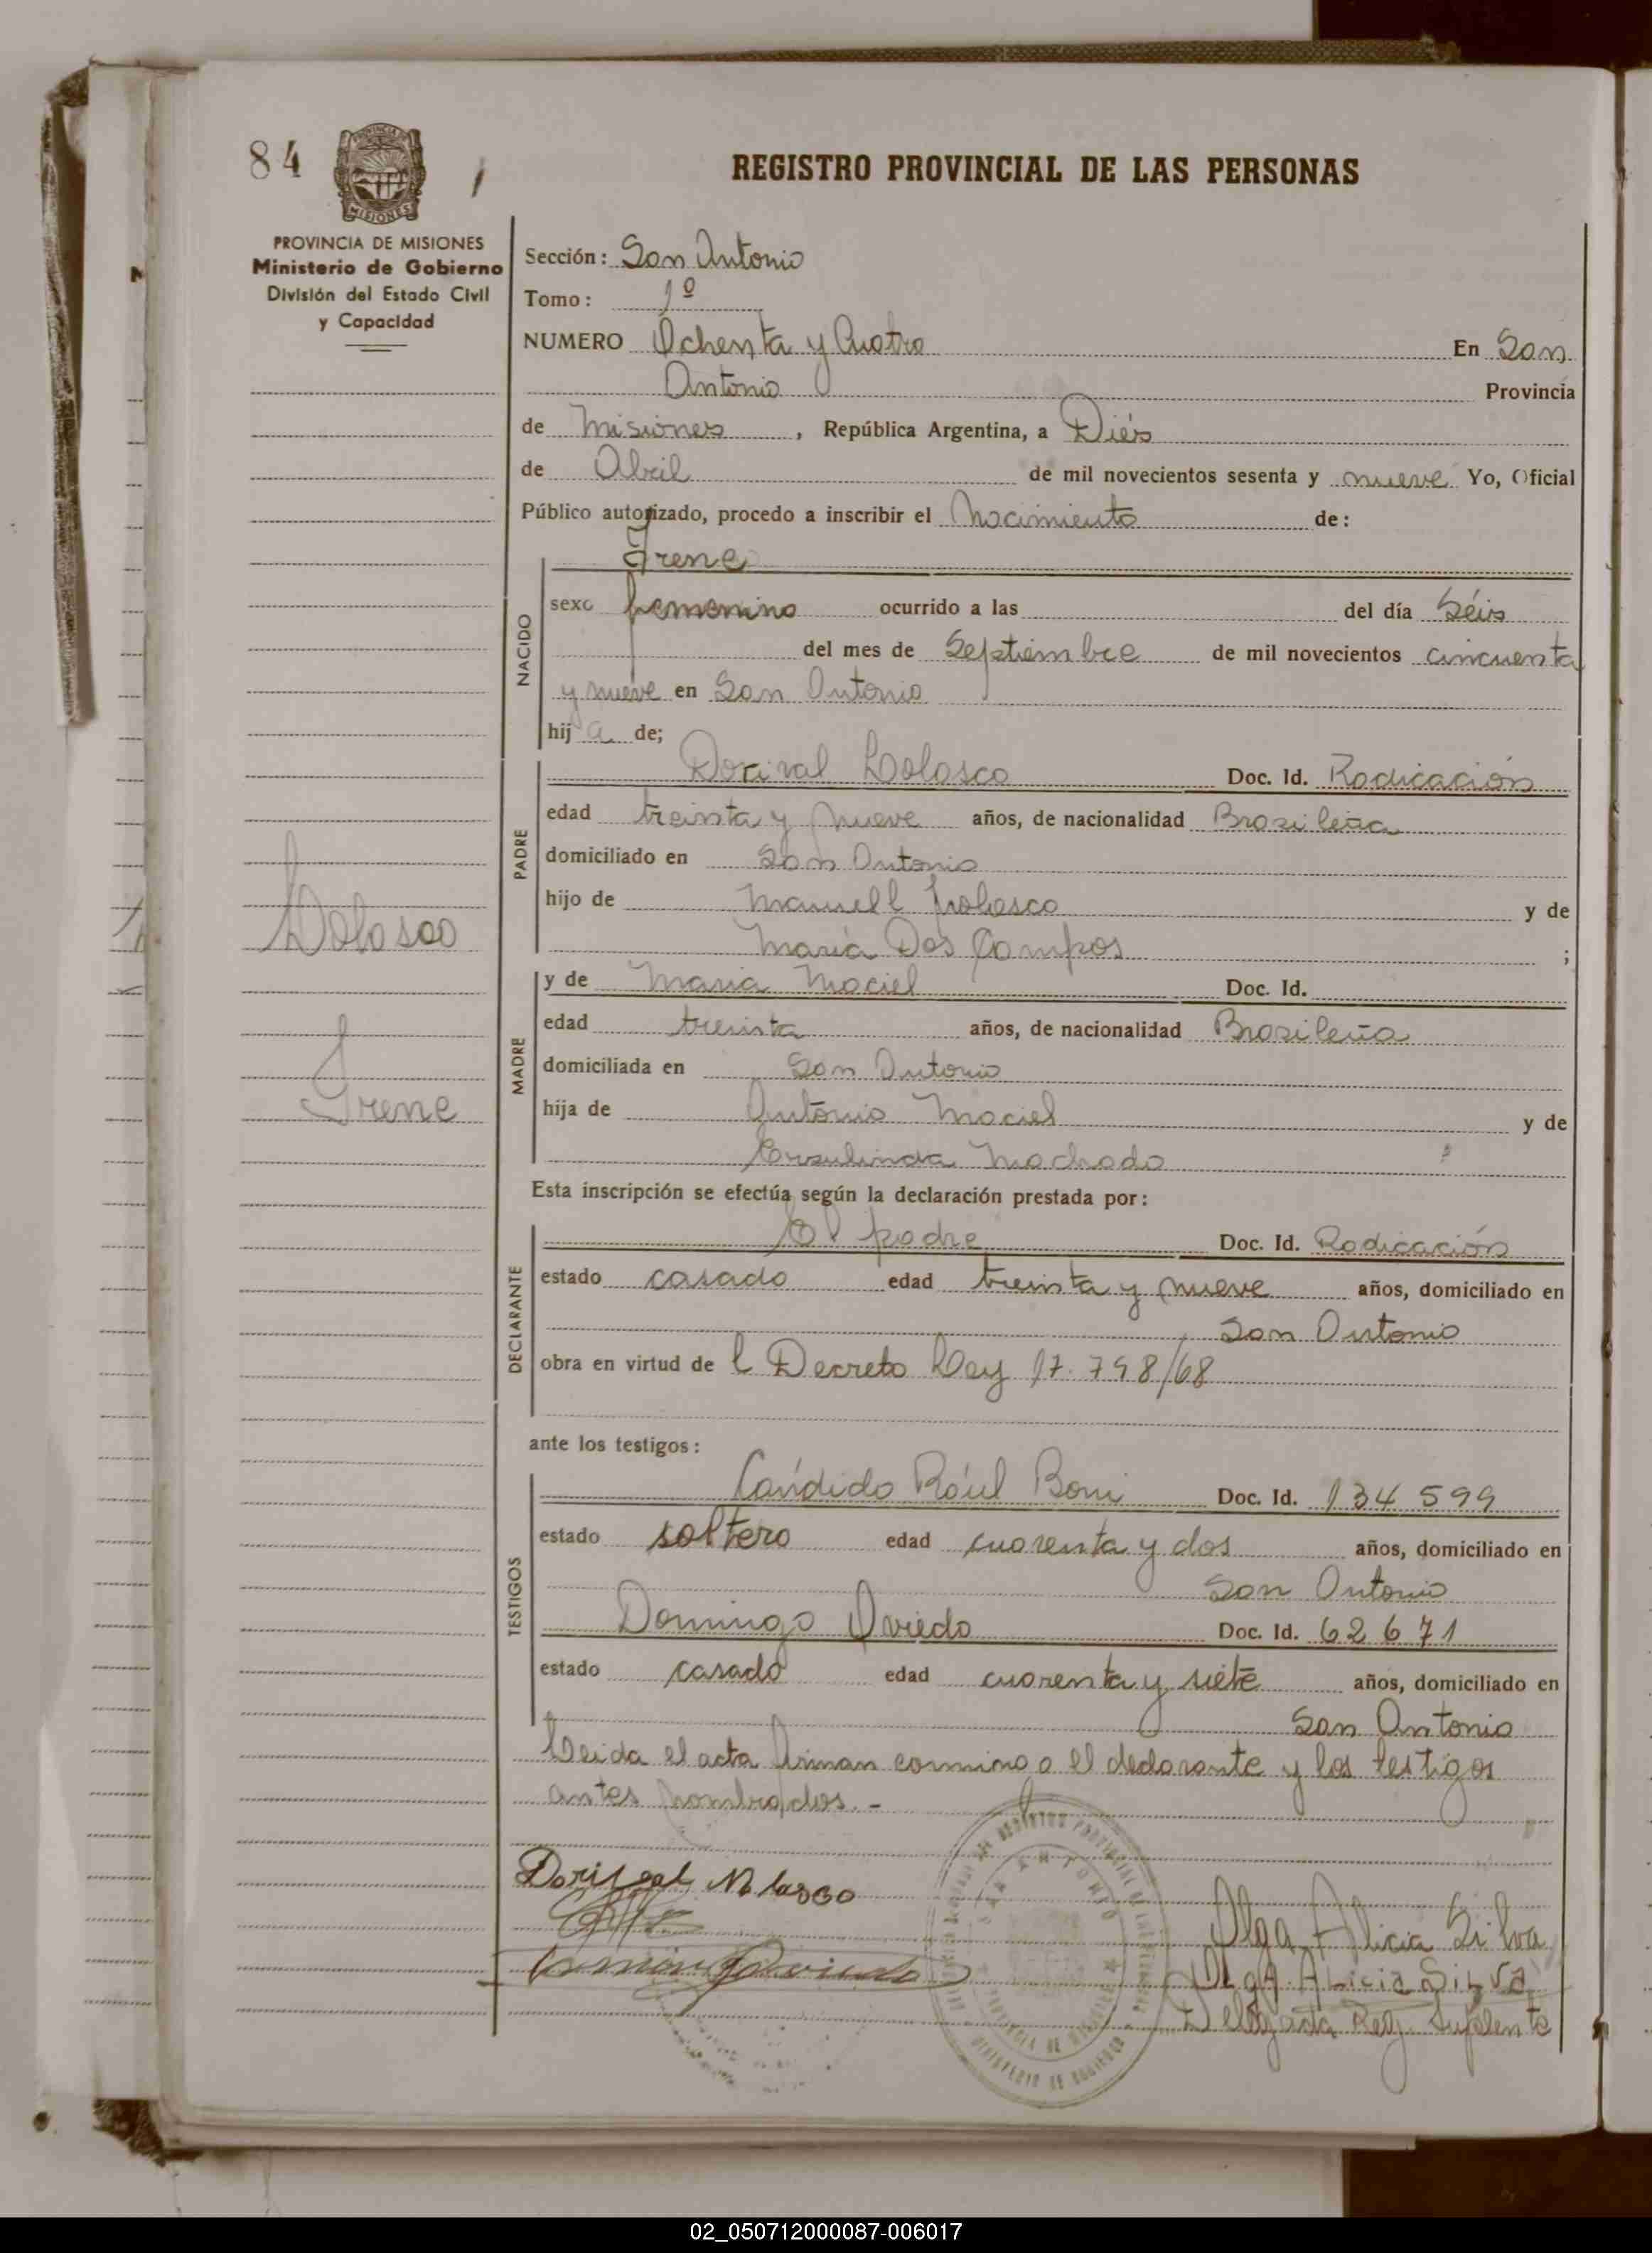 84
REGISTRO PROVINCIAL DE LAS PERSONAS
PROVINCIA DE MISIONES
Ministerio de Gobierno
División del Estado Civil
y Capacidad
Sección: San Antonio
Tomo: 1º
NUMERO Ochenta y Cuatro En San
Antonio Provincia
de Misiones, República Argentina, a Diés
de Abril de mil novecientos sesenta y nueve Yo, Oficial
Público autorizado, procedo a inscribir el Nacimiento de:
Irene
NACIDO
sexo femenino ocurrido a las del día Séis
del mes de Septiembre de mil novecientos cincuenta
y nueve en San Antonio
hija de;
PADRE
Dorival Lolasco Doc. Id. Radicación
edad treinta y nueve años, de nacionalidad Brasileña
domiciliado en San Antonio
hijo de Manuell Nolasco y de
Maria Dos Campos ;
Lolasco
Irene
MADRE
y de Maria Maciel Doc. Id.
edad treinta años, de nacionalidad Brasileña
domiciliada en San Antonio
hija de Antonio Maciel y de
Ersulinda Machado
Esta inscripción se efectúa según la declaración prestada por:
DECLARANTE
El padre Doc. Id. Radicación
estado casado edad treinta y nueve años, domiciliado en
San Antonio
obra en virtud de l Decreto Ley 17.798/68
ante los testigos:
TESTIGOS
Cándido Raúl Boni Doc. Id. 134599
estado soltero edad cuarenta y dos años, domiciliado en
San Antonio
Domingo Oviedo Doc. Id. 62671
estado casado edad cuarenta y siete años, domiciliado en
San Antonio
Leida el acta firman conmigo el declarante y los testigos
antes nombrados.-
Dorisval Nolasco
Olga Alicia Silva
Olga Alicia Silva
Delegada Reg. Suplente
02_050712000087-006017